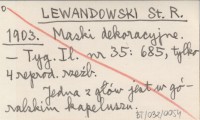 LEWANDOWSKI St. R.
1903. Maski dekoracyjne.
– Tyg. Il. nr 35: 685, tylko
4 reprod. rzeźb.
Jedna z głów jest w gó-
ralskim kapeluszu.
BT/032/0054